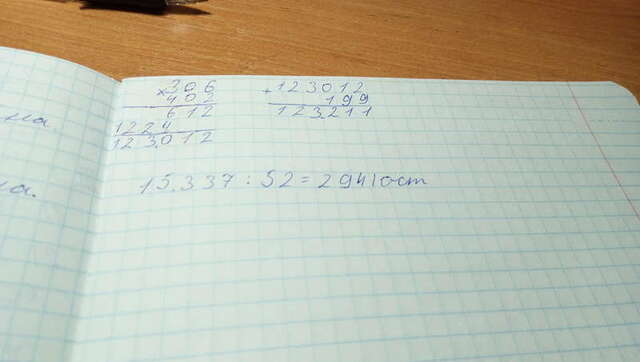 306
× 402
612
1224
123.012
+ 123012
199
123.211
15.337 : 52 = 294 | ост
на
на.